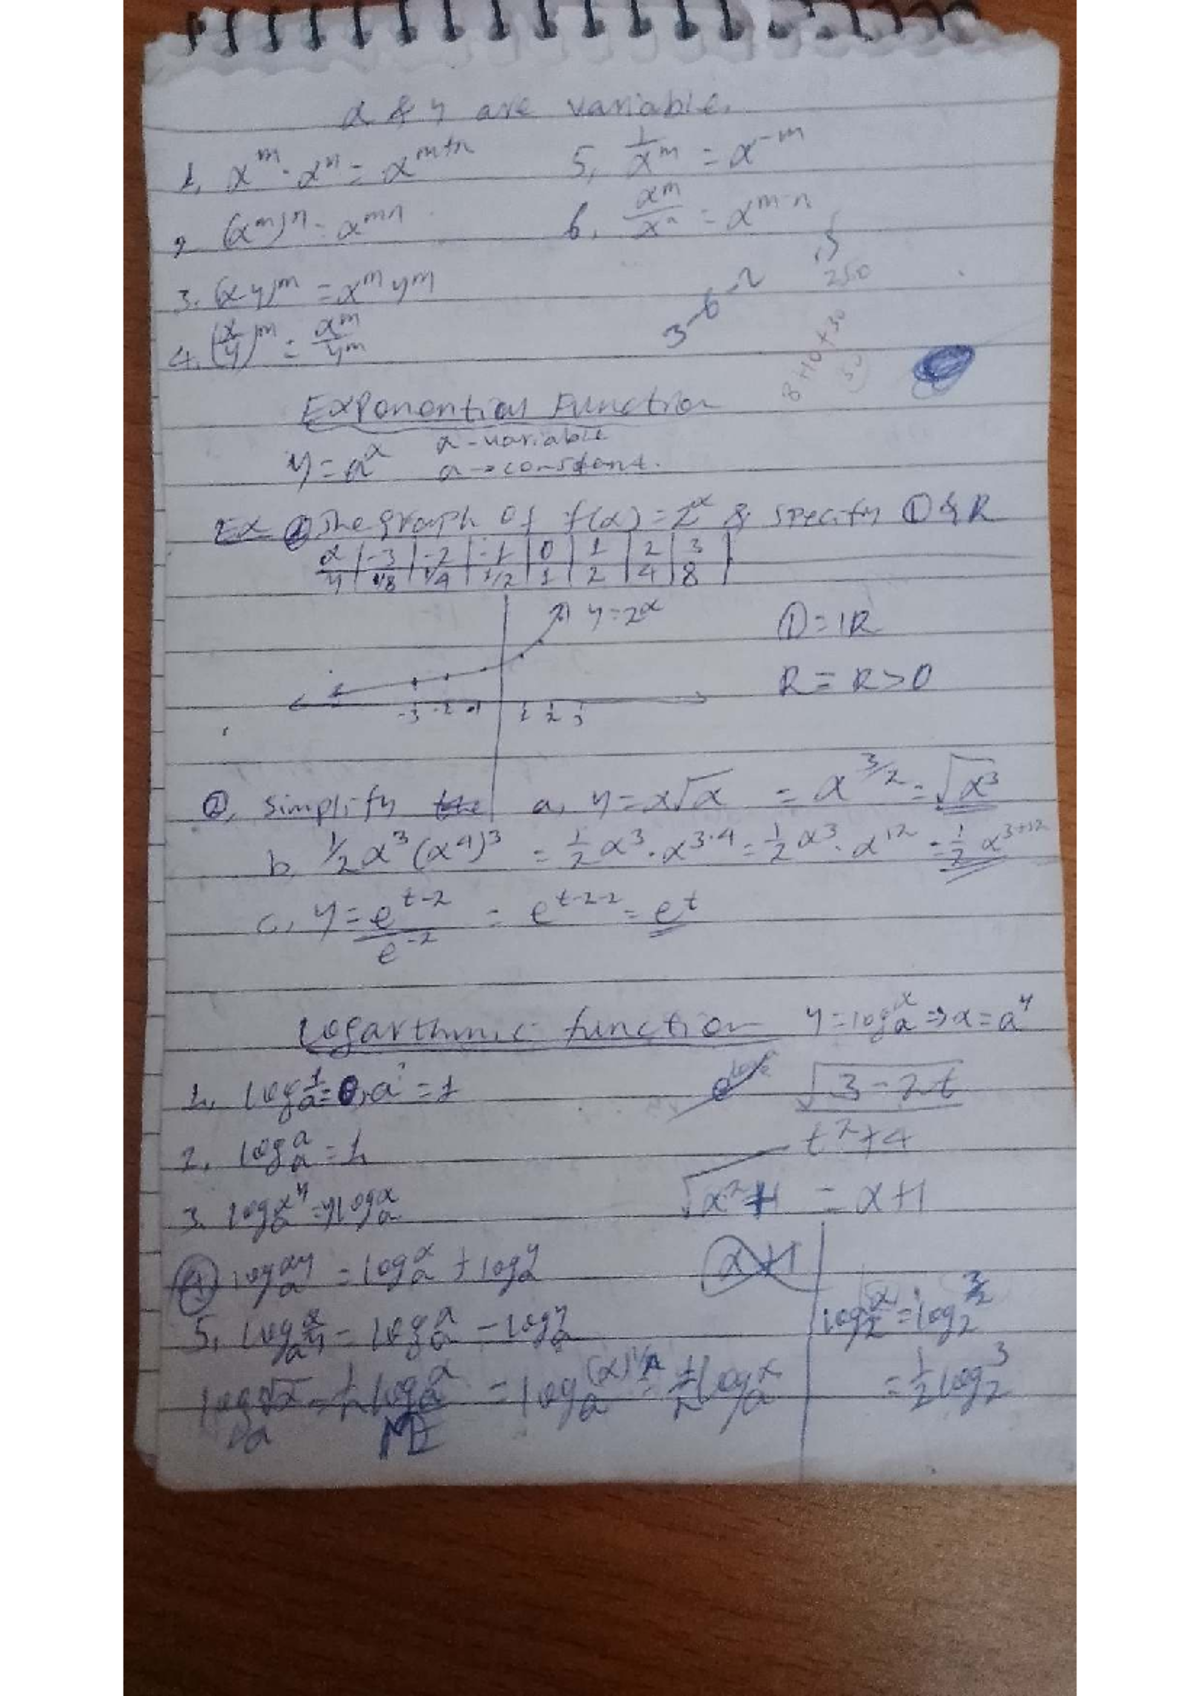 x & y are variable.
1, x^m · x^n = x^(m+n)    5, 1/x^m = x^-m
2 (x^m)^n = x^mn    6, x^m/x^n = x^(m-n)
3. (xy)^m = x^m y^m    3-6-2    250
4. (x/y)^m = x^m/y^m    8+10+30
Exponential Function
y = a^x    x - variable
a → constant.
Ex ① The graph of f(x) = 2^x & specify D & R
x | -3 | -2 | -1 | 0 | 1 | 2 | 3
y | 1/8 | 1/4 | 1/2 | 1 | 2 | 4 | 8
y = 2^x    D = IR
R = R > 0
-3 -2 -1 1 2 3
②, simplify a, y = x√x = x^(3/2) = √x^3
b, 1/2 x^3 (x^4)^3 = 1/2 x^3 · x^(3·4) = 1/2 x^3 · x^12 = 1/2 x^(3+12)
c, y = e^(t-2)/e^-2 = e^(t-2-2) = e^t
Logarthmic function    y = log_a^x ⇒ x = a^y
1, log_a^1 = 0, a^0 = 1    √(3-2t)
2, log_a^a = 1    t^2+4
3. log_a^(x^y) = y log_a^x    √(x^2+1) = x+1
④ log_a^(xy) = log_a^x + log_a^y    x+1
5, log_a^(x/y) = log_a^x - log_a^y    log_2^x = log_2^(3/2)
log_a^(√x) = 1/n log_a^x = log_a^((x)^(1/n)) = 1/n log_a^x    = 1/2 log_2^3